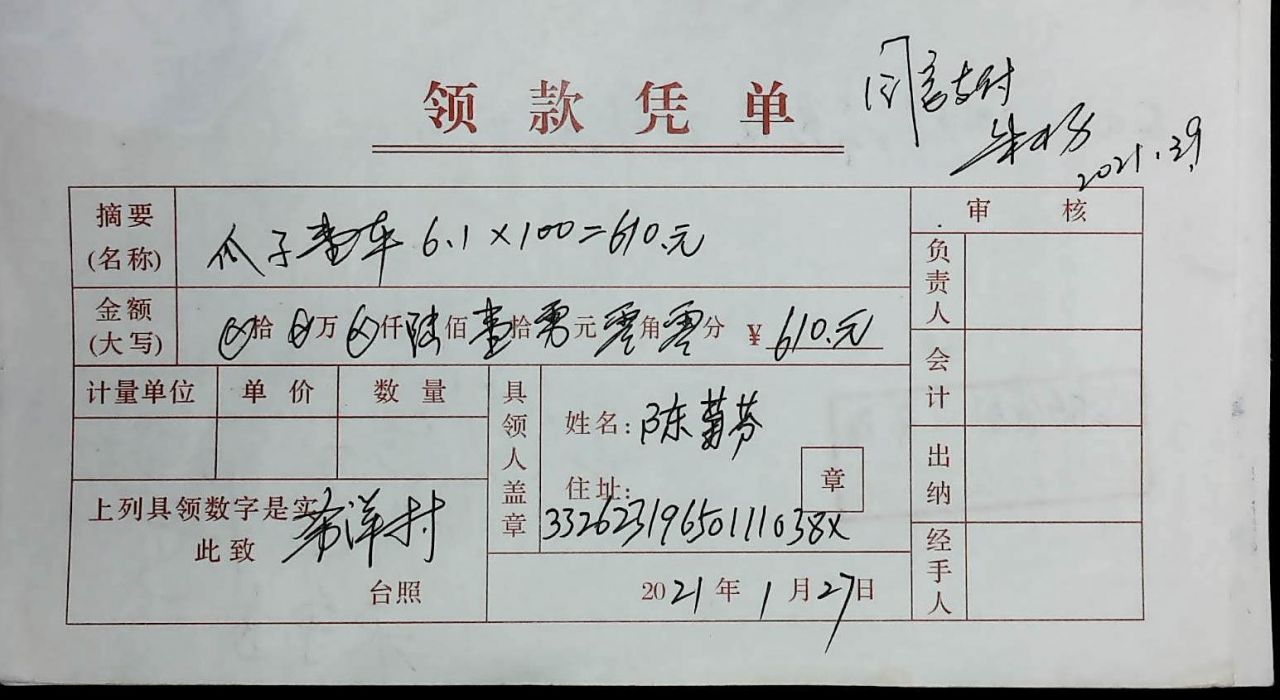 领款凭单
同意支付
2021.3.9
摘要(名称) 瓜子壹车 6.1×100=610.元
金额(大写) ⊗拾⊗万⊗仟陆佰壹拾零元零角零分 ¥610.元
计量单位 单价 数量
具领人盖章
姓名:陈菊芬
住址:
33262319650111038X
章
上列具领数字是实
此致 洋村
台照
2021年1月27日
审核
负责人
会计
出纳
经手人